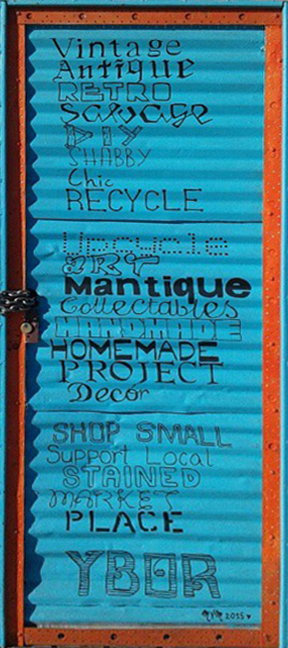 Vintage
Antique
RETRO
Salvage
DIY
SHABBY
Chic
RECYCLE
Upcycle
ART
Mantique
Collectables
HANDMADE
HOMEMADE
PROJECT
Decór
SHOP SMALL
Support Local
STAINED
MARKET
PLACE
YBOR
2015